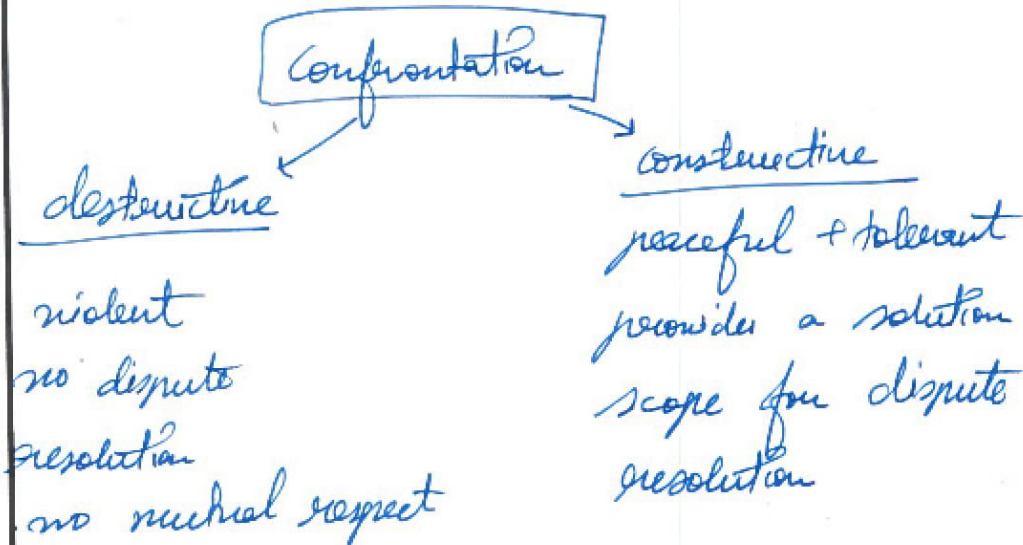 Confrontation
destructive
violent
no dispute
resolution
no mutual respect
constructive
peaceful + tolerant
provides a solution
scope for dispute
resolution